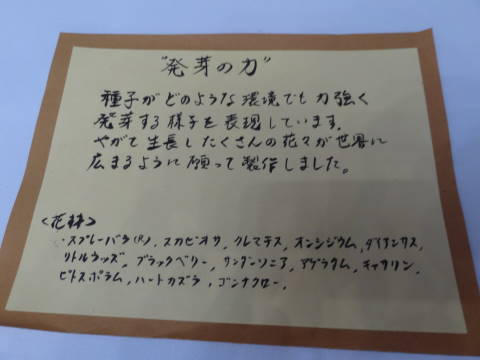 "発芽の力"
種子がどのような環境でも力強く
発芽する様子を表現しています。
やがて生長したくさんの花々が世界に
広まるように願って製作しました。
<花材>
・スプレーバラ(P)、スカビオサ、クレマチス、オンシジウム、ダイアンサス、
リトルウッズ、ブラックベリー、サンダーソニア、アゲラタム、キャサリン、
ピトスポラム、ハートカズラ、ゴンナクロー、